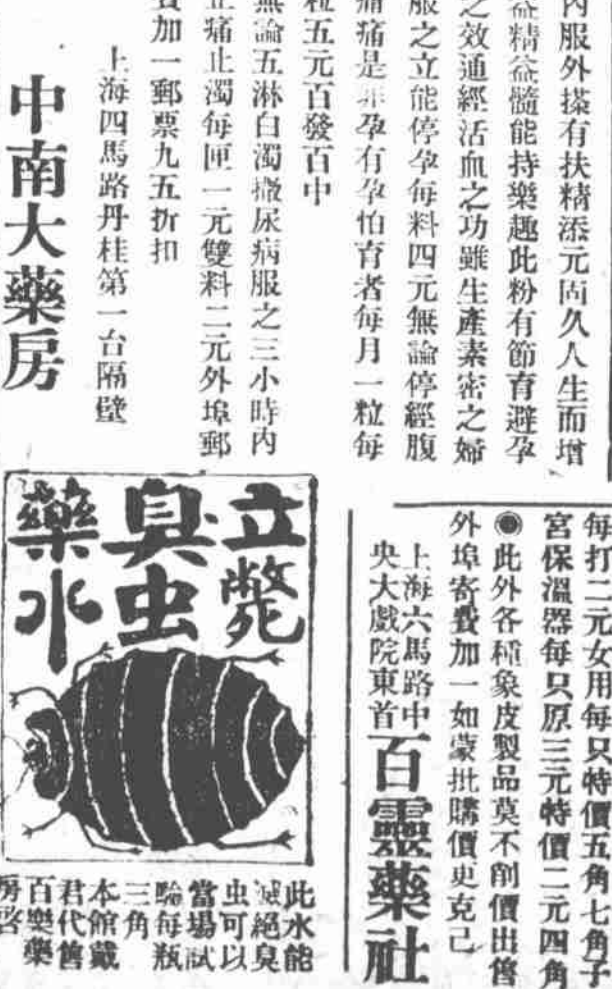 內服外搽有扶精添元固久人生而增
益精益髓能持樂趣此粉有節育避孕
之效通經活血之功雖生產素密之婦
服之立能停孕每料四元無論停經腹
痛是非孕有孕怕育者每月一粒每
粒五元百發百中
無論五淋白濁撒尿病服之三小時內
止痛止濁每匣一元雙料二元外埠郵
費加一郵票九五折扣
上海四馬路丹桂第一台隔壁
中南大藥房
每打二元女用每只特價五角七角子
宮保溫器每只原三元特價二元四角
◉此外各種象皮製品莫不削價出售
外埠寄費加一如蒙批購價更克己
上海六馬路中
央大戲院東首
百靈藥社
立斃
臭虫
藥水
此水能
滅絕臭
虫可以
當場試
驗每瓶
三角
本館戴
君代售
百樂藥
房啓